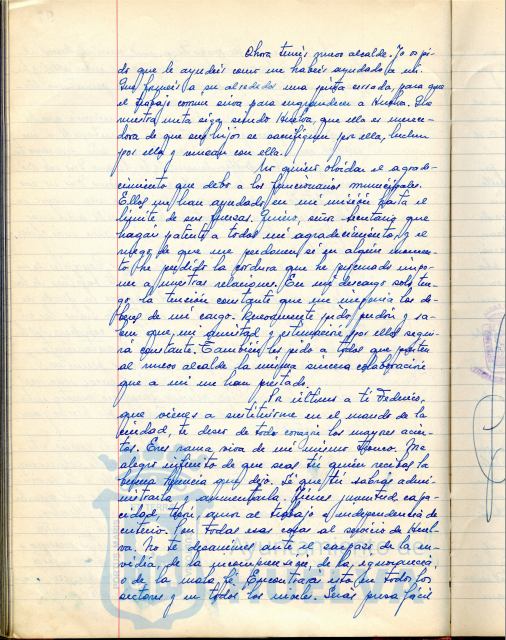 Ahora tenéis nuevo alcalde. Yo os pi-
do que le ayudéis como me habéis ayudado a mí.
Que forméis a su alrededor una piña cerrada, para que
el trabajo común sirva para engrandecer a Huelva. Que
nuestra meta siga siendo Huelva, que ella es merece-
dora de que sus hijos se sacrifiquen por ella, luchen
por ella y sueñen con ella.
No quiero olvidar el agrade-
cimiento que debo a los funcionarios municipales.
Ellos me han ayudado en mi misión hasta el
límite de sus fuerzas. Quiero, señor Secretario que
hagáis patente a todos mi agradecimiento, y el
ruego de que me perdonen si en algún momen-
to he perdido la cordura que he procurado impo-
ner a nuestras relaciones. En mi descargo solo ten-
go la tensión constante que me imponía los de-
beres de mi cargo. Nuevamente pido perdón y sa-
ben que mi amistad y estimación por ellos segui-
rá constante. También les pido a todos que presten
al nuevo alcalde la misma sincera colaboración
que a mí me han prestado.
Por último a ti Federico,
que vienes a sustituirme en el mando de la
ciudad, te deseo de todo corazón los mayores acier-
tos. Eres rama viva de mi mismo tronco. Me
alegro infinito de que seas tú quien recibas la
buena herencia que dejo. Sé que tú sabrás admi-
nistrarla y aumentarla. Tienes juventud, capa-
cidad, tesón, amor al trabajo e independencia de
criterio. Pon todas esas cosas al servicio de Huel-
va. No te desanimes ante el zarpazo de la en-
vidia, de la incomprensión, de la ignorancia,
o de la mala fe. Encontrarás esto en todos los
sectores y en todos los niveles. Serás presa fácil